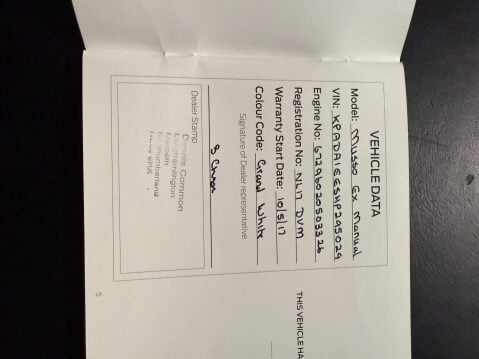 VEHICLE DATA
Model: Musso Ex Manual
VIN: KPADA1EESHP295029
Engine No: 67296020503326
Registration No: NL17 DVM
Warranty Start Date: 10/5/17
Colour Code: Grand White
Signature of Dealer representative
Dealer Stamp
Dennis Common
Longframlington
Morpeth
Northumberland
5
THIS VEHICLE HA